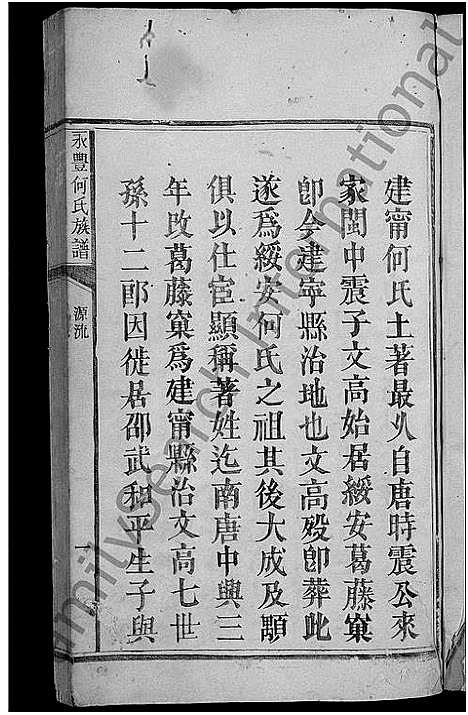 建甯何氏土著最久自唐時震公來
家閩中震子文高始居綏安葛藤窠
卽今建寧縣治地也文高殁卽葬此
遂爲綏安何氏之祖其後大成及顒
俱以仕宦顯稱著姓迄南唐中興三
年改葛藤窠爲建甯縣治文高七世
孫十二郎因徙居邵武和平生子與
永豐何氏族譜
源流
一
familysearch International